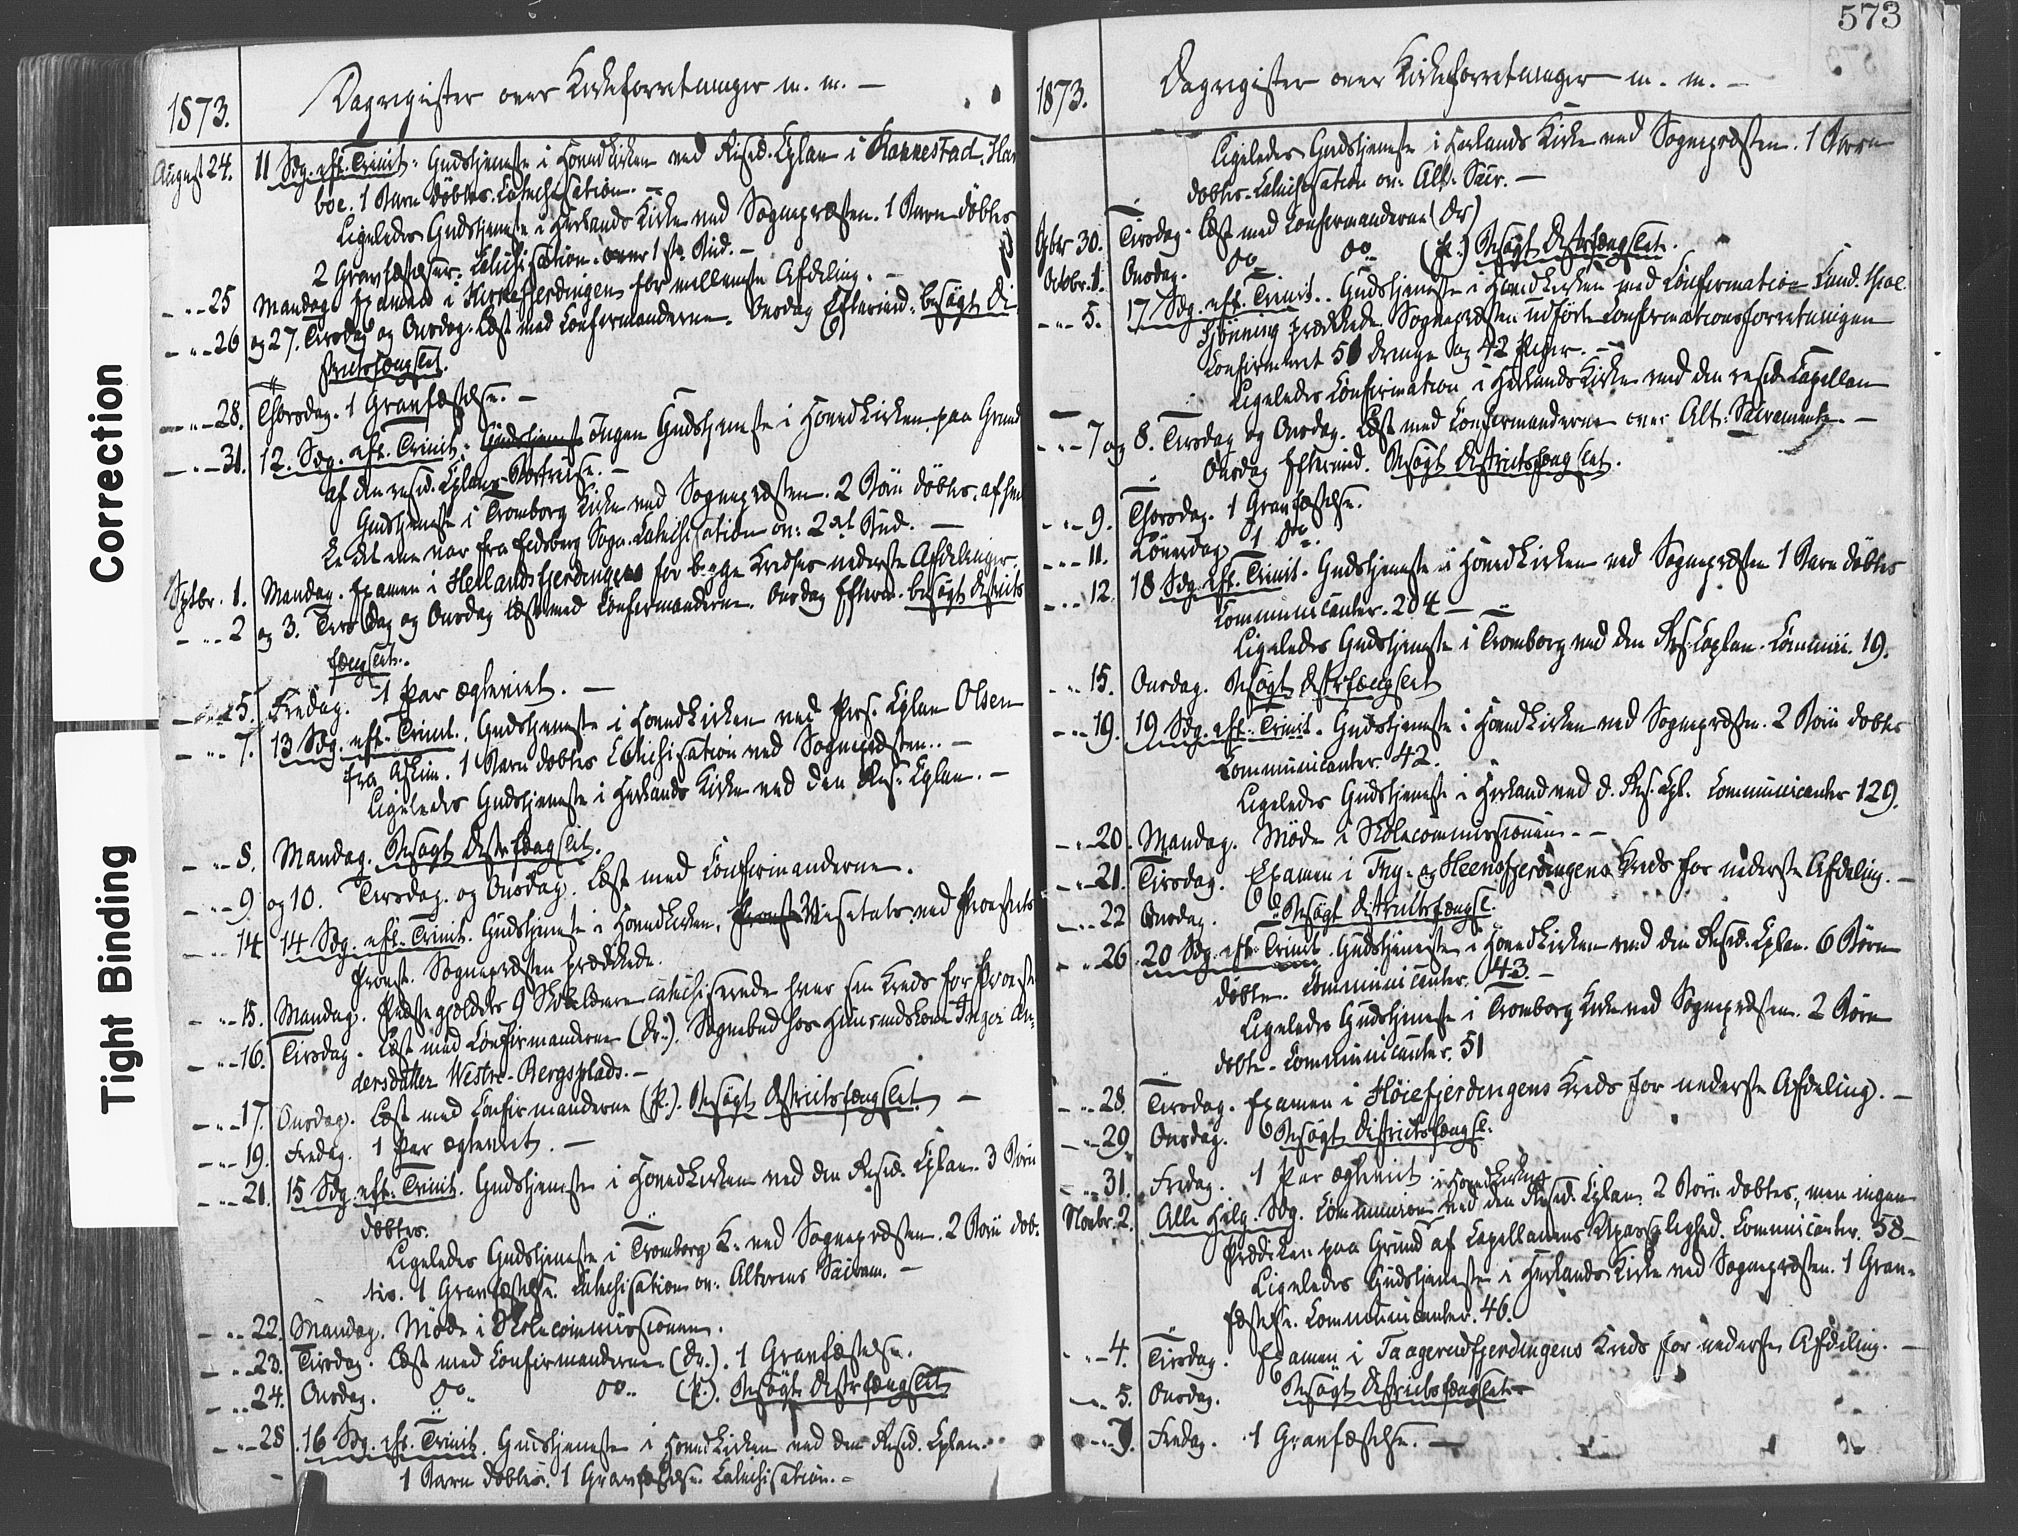 Correction
Tight Binding
1873. Dagregister over Kirkeforretninger m. m. —
August 24. 11 Sdg. eft. Trinit. Gudstjeneste i Hovedkirken ved Resid. Cplan i Rannestad, Har
boe. 1 Barn döbtes. Catechisation. —
Ligeledes Gudstjeneste i Herlands Kirke ved Sognepræsten. 1 Barn döbtes
2 Gravfæstelser. Catechisation over 1ste Bud. —
— " — 25 Mandag Examen i Kirkefjerdingen for mellemste Afdeling. —
— " — 26 og 27. Tirsdag og Onsdag. Læst med Confirmanderne. Onsdag Eftermd. besögt Di
strictsfængslet.
— " — 28. Thorsdag. 1 Gravfæstelse. —
— " — 31. 12. Sdg. eft. Trinit. Gudstjeneste Ingen Gudstjeneste i Hovedkirken paa Grund
af den resid. Cplans Bortreise. —
Gudstjeneste i Tromborg Kirke ved Sognepræsten. 2 Börn döbtes, af hvil
ke det ene var fra Eidsberg Sogn. Catechisation ov: 2det Bud. —
Sptbr. 1. Mandag. Examen i Herlandsfjerdingens for begge Kredses nederste Afdelinger.
— " — 2 og 3. Tirsdag og Onsdag læst med Confirmanderne. Onsdag Efterm. besögt Districts
fængslet.
— " — 5. Fredag. 1 Par ægteviet. —
— " — 7. 13 Sdg. eft. Trinit. Gudstjeneste i Hovedkirken ved Pers. Cplan Olsen
fra Askim. 1 Barn döbtes Catechisation ved Sognepræsten. —
Ligeledes Gudstjeneste i Herlands Kirke ved den Res. Cplan. —
— " — 8. Mandag. Besögt Distrfængslet.
— " — 9 og 10. Tirsdag og Onsdag. Læst med Confirmanderne.
— " — 14 14 Sdg. eft. Trinit. Gudstjeneste i Hovedkirken. Visitats ved
Provst. Sognepræsten prædikede.
— " — 15. Mandag. 9 Skolelærere catechiserede hver sin Kreds for Provste
— " — 16. Tirsdag. Læst med Confirmanderne (Dr.). Sognebud hos Huusmandskone Inger An-
dersdatter Westre-Bergsplads. —
— " — 17. Onsdag. Læst med Confirmanderne (P.). Besögt Districtsfængslet —
— " — 19. Fredag. 1 Par ægteviet. —
— " — 21. 15 Sdg. eft. Trinit. Gudstjeneste i Hovedkirken ved den Resid. Cplan. 3 Börn
döbtes.
Ligeledes Gudstjeneste i Tromborg K. ved Sognepræsten. 2 Börn döb-
tes. 1 Gravfæstelse. Catechisation ov: Alterens Sacram. —
— " — 22. Mandag. Möde i Skolecommissionen.
— " — 23. Tirsdag. Læst med Confirmanderne (Dr.). 1 Gravfæstelse.
— " — 24. Onsdag. Do. do. (P.). Besögt Distrfængslet
— " — 28 16 Sdg. eft. Trinit. Gudstjeneste i Hovedkirken ved den Resid. Cplan.
1 Barn döbtes. 1 Gravfæstelse. Catechisation. —
573
1873. Dagregister over Kirkeforretninger m. m. —
Ligeledes Gudstjeneste i Herlands Kirke ved Sognepræsten. 1 Barn
döbtes. Catechisation ov: Alt: Sacr. —
Sptbr 30. Tirsdag. Læst med Confirmanderne (Dr)
Octobr. 1. Onsdag. Do do (P.) Besögt Distrfængslet.
— " — 5. 17 Sdg. eft. Trinit. Gudstjeneste i Hovedkirken med Confirmation Cand. theol.
prædikede. Sognepræsten udförte Confirmationsforretningen
Confirmeret 51 Drenge og 42 Piger. —
Ligeledes Confirmation i Herlands Kirke ved den resid. Capellan
— " — 7 og 8. Tirsdag og Onsdag. Læst med Confirmanderne over Alt: Sacramente. —
Onsdag Eftermd. Besögt Districtsfængslet.
— " — 9. Thorsdag. 1 Gravfæstelse.
— " — 11. Löverdag 1 do.
— " — 12. 18 Sdg. eft. Trinit. Gudstjeneste i Hovedkirken ved Sognepræsten 1 Barn döbtes
Communicanter. 204 —
Ligeledes Gudstjeneste i Tromborg ved den Res. Caplan. Commu. 19.
— " — 15. Onsdag. Besögt Distrfængslet
— " — 19. 19 Sdg. eft. Trinit. Gudstjeneste i Hovedkirken ved Sognepræsten. 2 Börn döbtes
Communicanter. 42.
Ligeledes Gudstjeneste i Herland ved d. Res. Cpl. Communicanter 129.
— " — 20. Mandag. Möde i Skolecommissionen. —
— " — 21. Tirsdag. Examen i Try- og Heensfjerdingens Kreds for nederste Afdeling. —
— " — 22 Onsdag. Besögt Districtsfængsl.
— " — 26 20 Sdg. eft. Trinit. Gudstjeneste i Hovedkirken ved den Resid. Cplan. 6 Börn
döbte. Communicanter. 43. —
Ligeledes Gudstjeneste i Tromborg Kirke ved Sognepræsten. 2 Börn
döbte. Communicanter. 51
— " — 28. Tirsdag. Examen i Höiefjerdingens Kreds for nederste Afdeling. —
— " — 29. Onsdag. Besögt Districtsfængsl.
— " — 31. Fredag. 1 Par ægteviet i Hovedkirken
Novbr. 2. Alle Helg. Sdg. Communion ved den Resid. Cplan. 2 Börn döbtes, men ingen
Prædiken paa Grund af Capellanens Upasselighed. Communicanter. 58 —
Ligeledes Gudstjeneste i Herlands Kirke ved Sognepræsten. 1 Grav-
fæstelse. Communicanter. 46.
— " — 4. Tirsdag. Examen i Taagerudfjerdingens Kreds for nederste Afdeling. —
— " — 5. Onsdag. Besögt Districtsfængslet —
— " — 7. Fredag. 1 Gravfæstelse. —